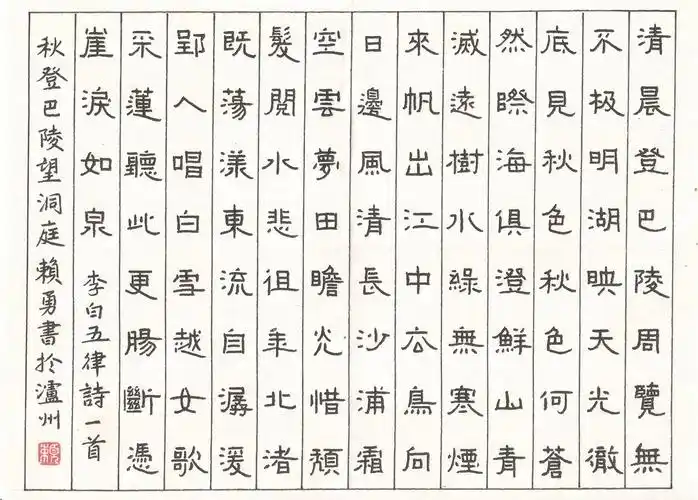 清晨登巴陵周覽無
不极明湖映天光徹
底見秋色秋色何蒼
然際海俱澄鮮山青
滅遠樹水綠無寒煙
來帆出江中去鳥向
日邊風清長沙浦霜
空雲夢田瞻光惜頹
髮閱水悲徂年北渚
既蕩漾東流自潺湲
郢人唱白雪越女歌
采蓮聽此更腸斷憑
崖淚如泉 李白五律詩一首
秋登巴陵望洞庭賴勇書於瀘州
賴